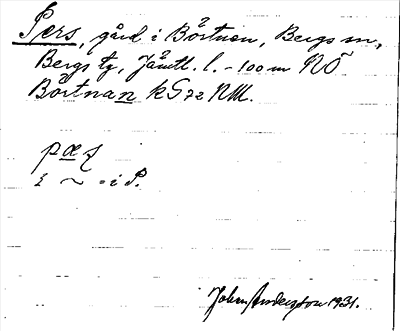 Pers, gård i Börtnen, Bergs sn,
Bergs tg, Jämtl. l. - 100 m NÖ
Börtnan kG72 NM.
pæʂ
i ~ = i P.
Johan Anderszon 1931.